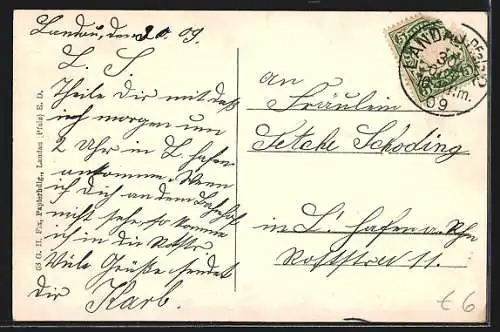 Landau, den 20. 09.
L. S.
Theile Dir mit daß
ich morgen um
2 Uhr in L'hafen
ankomme. Wenn
ich Dich an dem Bahnhof
nicht sehe, so komme
ich in die
Viele Grüße sendet
Dir Karb.
68 O. H. Fix, Papierhdlg., Landau (Pfalz) E. D.
LANDAU (Pfalz)
09
5
An
Fräulein
Setche Schoding
in L'hafen a. Rhn
11.
€ 6